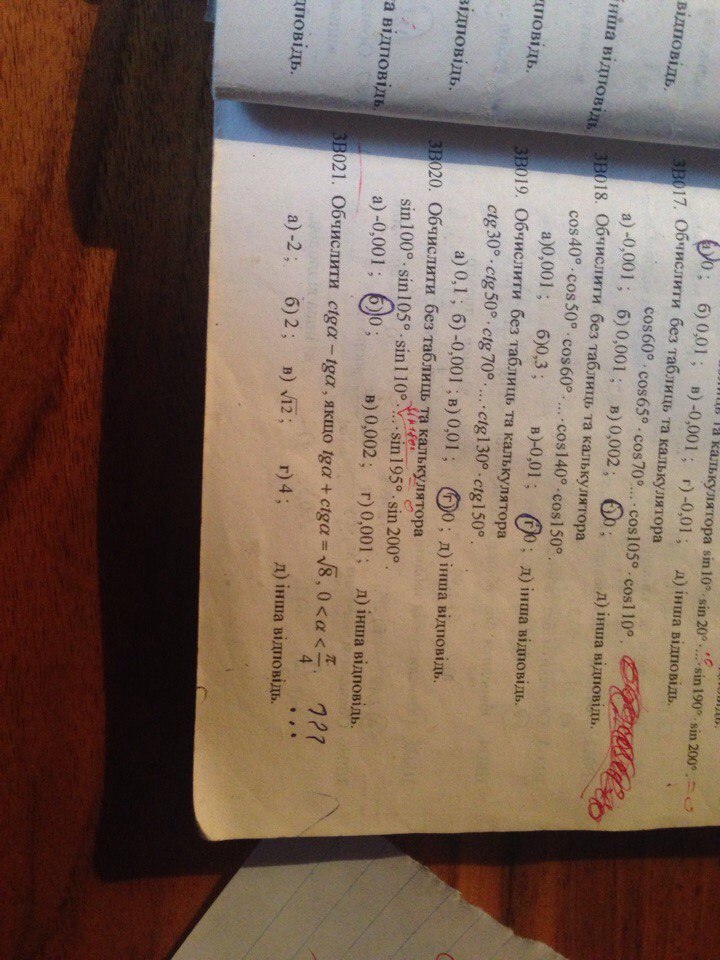 відповідь.
інша відповідь.
повідь.
відповідь.
а відповідь.
повідь.
та калькулятора sin10° · sin 20° ... · sin190° · sin 200°. = 0
а) 0 ; б) 0,01 ; в) -0,001 ; г) -0,01 ; д) інша відповідь.
3В017. Обчислити без таблиць та калькулятора
cos60° · cos65° · cos70°... · cos105° · cos110°.
а) -0,001 ; б) 0,001 ; в) 0,002 ; г) 0; д) інша відповідь.
3В018. Обчислити без таблиць та калькулятора
cos40° · cos50° · cos60° · ... · cos140° · cos150°.
а)0,001 ; б)0,3 ; в)-0,01 ; г) 0 ; д) інша відповідь.
3В019. Обчислити без таблиць та калькулятора
ctg30° · ctg50° · ctg70° · ... · ctg130° · ctg150°.
а) 0,1 ; б) -0,001 ; в) 0,01 ; г) 0 ; д) інша відповідь.
3В020. Обчислити без таблиць та калькулятора
sin100° · sin105° · sin110° · ... · sin195° · sin 200°.
а) -0,001 ; б) 0 ; в) 0,002 ; г) 0,001 ; д) інша відповідь.
3В021. Обчислити ctgα − tgα , якщо tgα + ctgα = √8 , 0 < α < π/4 . ???
а) -2 ; б) 2 ; в) √12 ; г) 4 ; д) інша відповідь.